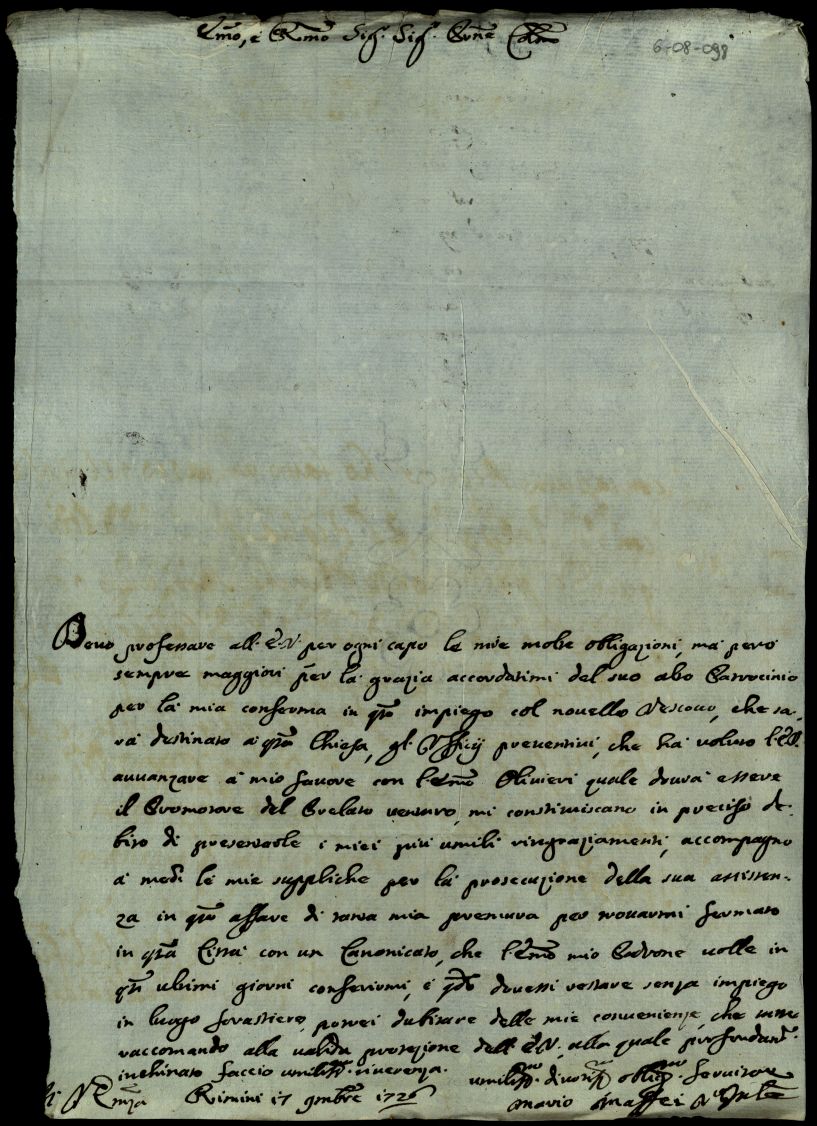 Emo, e Rmo Sig.r Sig.r Prone Colmo
6-08-098
Devo professare all'E.V. per ogni capo le mie molte obligazioni, ma però
sempre maggiori per la grazia accordatimi del suo alto Patrocinio
per la mia conferma in qto impiego col novello Vescovo, che sa-
rà destinato a qta Chiesa, gl'Ufficij preventivi, che ha voluto l'E.V.
avvanzare a mio favore con l'Emo Olivieri quale dovrà essere
il Promotore del Prelato venturo, mi constituiscano in preciso de-
bito di presentarle i miei più umili ringraziamenti, accompagno
a medi le mie suppliche per la prosecuzione della sua assisten-
za in qto affare di tanta mia premura per trovarmi fermato
in qta Città con un Canonicato, che l'Emo mio Padrone volle in
qti ultimi giorni conferirmi, e qdo dovessi restare senza impiego
in luogo forastiero, potrei dubitare delle mie convenienze, che tutte
raccomando alla valida protezione dell'E.V., alla quale profondamte
inchinato faccio umilissa riverenza.
Rimini 17 9mbre 1726
umilissmo divotissmo obligmo Servitore
Mario Maffei